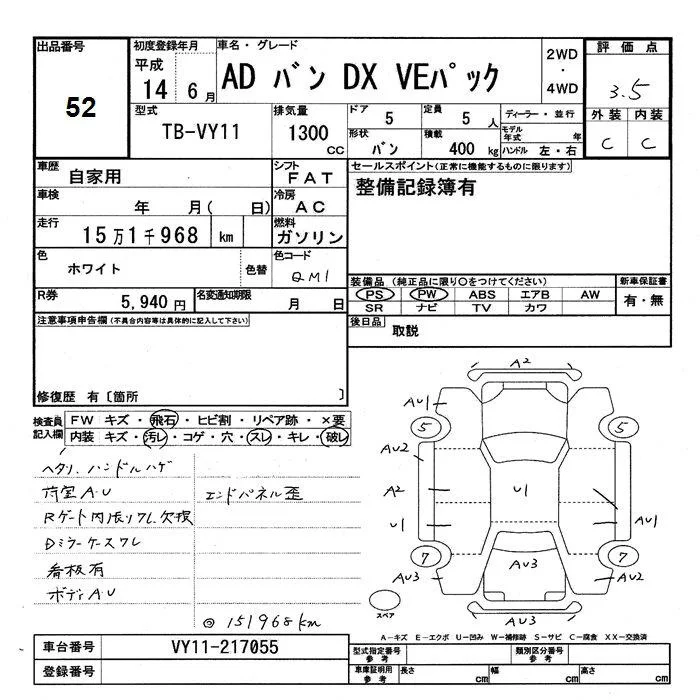 出品番号
52
初度登録年月
平成
14 6月
車名・グレード
AD バン DX VEパック
2WD
・
4WD
評価点
3.5
外装 内装
C C
型式
TB-VY11
排気量
1300
CC
ドア
5
定員
5 人
形状
バン
積載
400 kg
ディーラー・並行
モデル年式 年
ハンドル 左・右
車歴
自家用
シフト
FAT
車検
年 月( 日)
冷房
AC
走行
15万1千968 km
燃料
ガソリン
色
ホワイト
色替
色コード
QM1
R券
5,940円
名変通知期限
月 日
セールスポイント(正常に機能するものに限ります)
整備記録簿有
装備品(純正品に限り○をつけてください)
PS PW ABS エアB AW
SR ナビ TV カワ
新車保証書
有・無
後日品
取説
注意事項申告欄(不具合内容等は具体的に記入して下さい)
修復歴 有〔箇所 〕
検査員記入欄
FW キズ・飛石・ヒビ割・リペア跡・×要
内装 キズ・汚レ・コゲ・穴・スレ・キレ・破レ
ヘタリ、ハンドルハゲ
荷室A.U
エンドパネル歪
Rゲート内張リワレ欠損
Dミラーケースワレ
看板有
ボディA.U
◎151968km
A2
AU1
5
5
AU2
A2
U1
U1
AU1
7
7
AU3
AU3
AU2
AU3
スペア
A-キズ E-エクボ U-凹み W-補修跡 S-サビ C-腐食 XX-交換済
車台番号
VY11-217055
登録番号
型式指定番号
参考
類別区分番号
参考
車庫証明用
参考
長さ cm
幅 cm
高さ cm